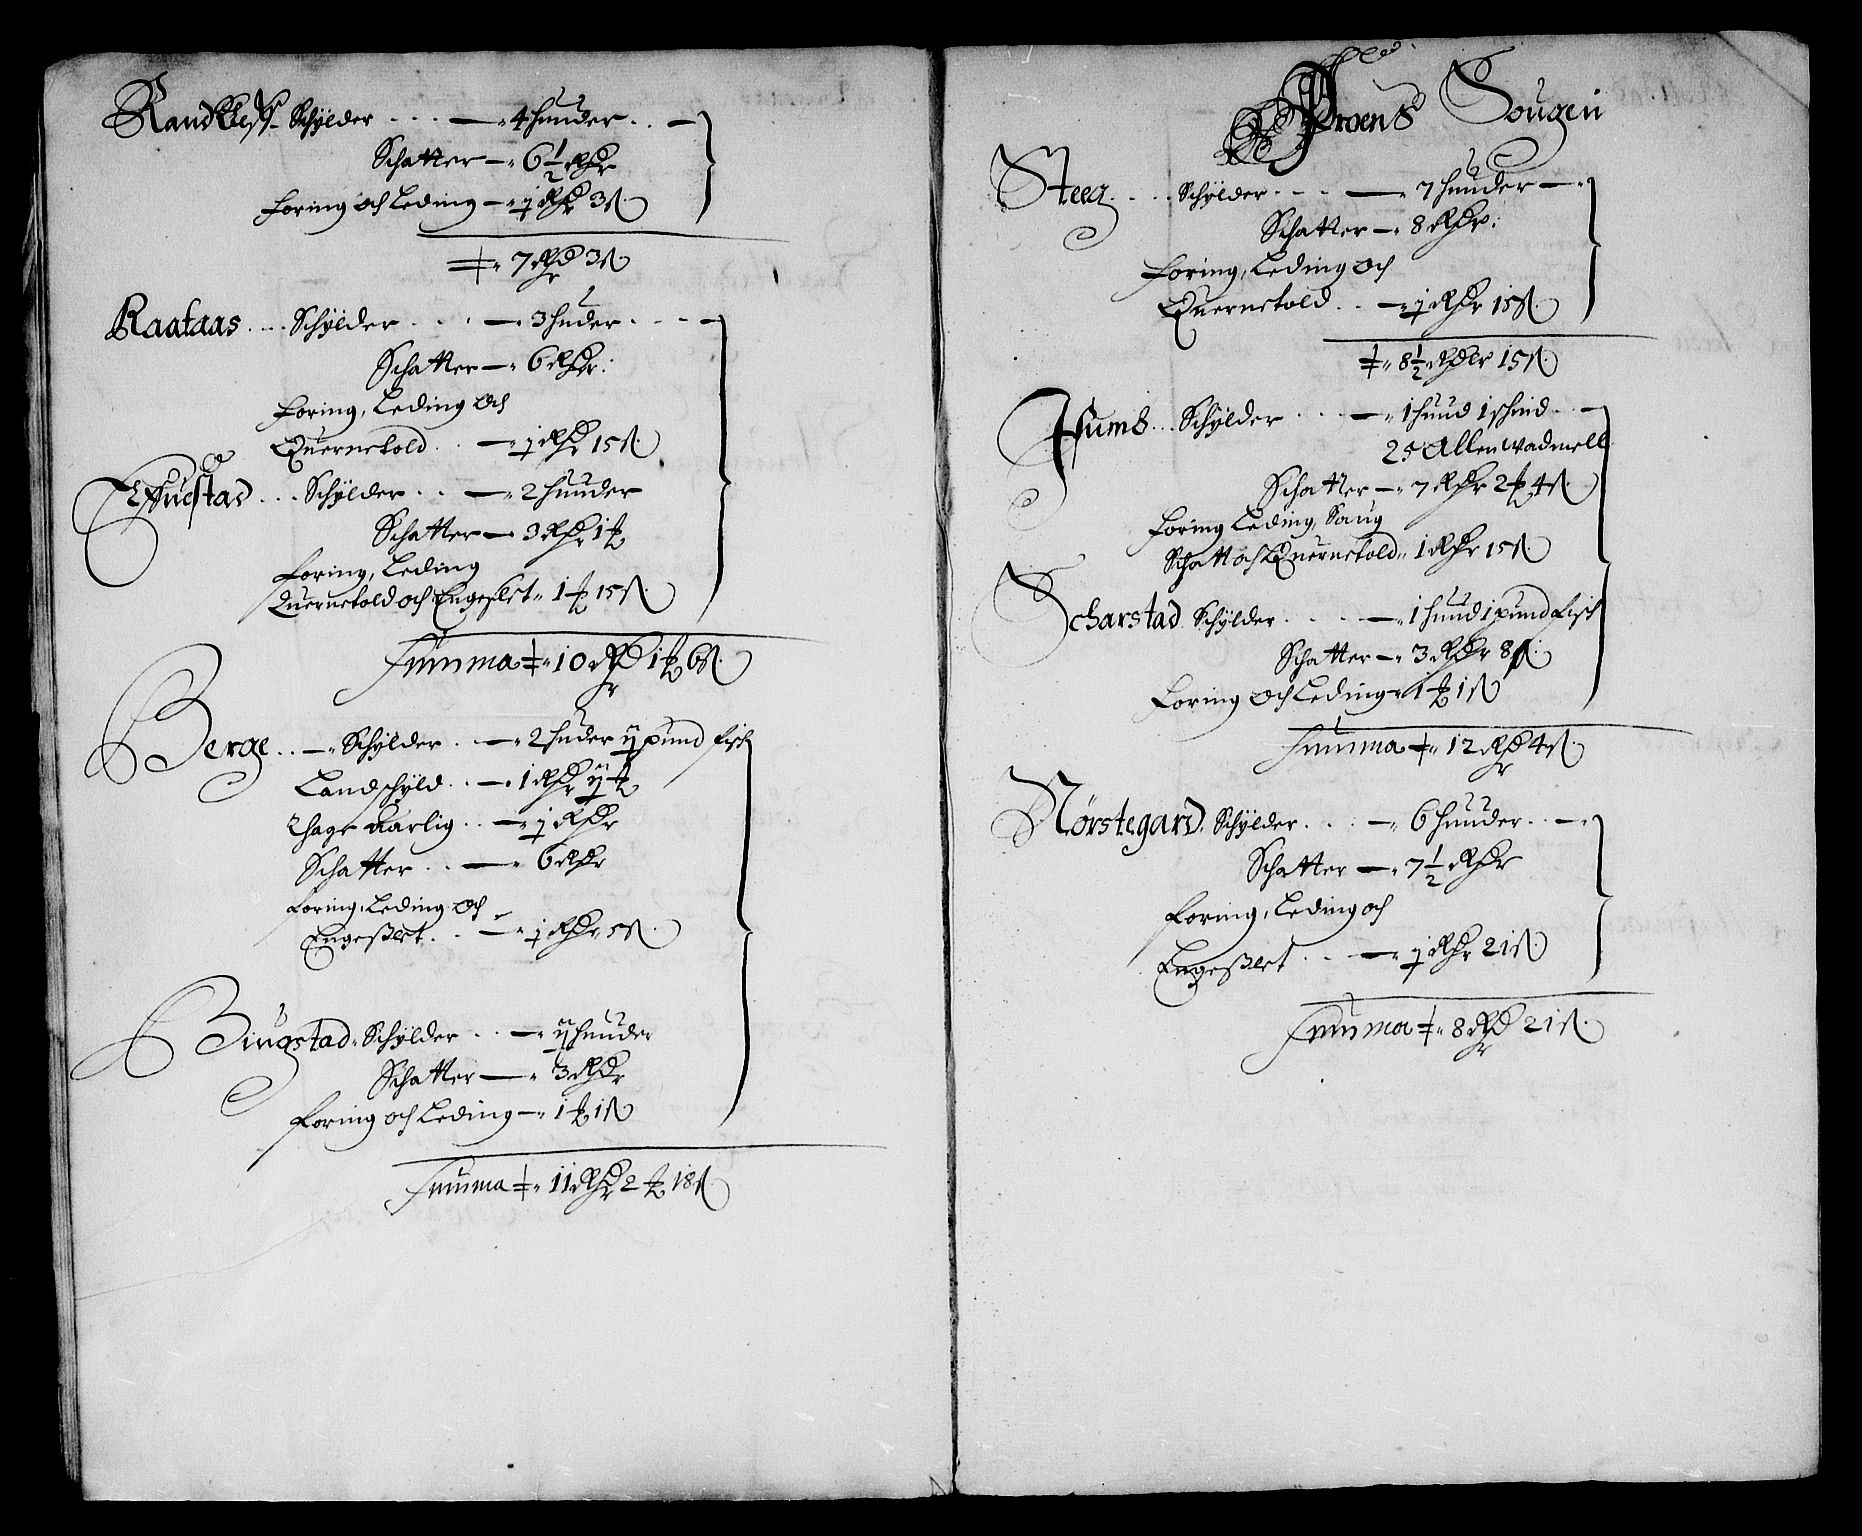 Randkleff - Schÿlder - - - 4 huuder - -
Schatter - 6 1/2 Rdr
foring och Leding - 1/2 Rdr 3 ß.
7 Rd 3 ß
Raataas - - Schÿlder - - - 3 huder - - -
Schatter - 6 Rdr:
foring, Leding och
Quernetold - - 1/2 Rdr 15 ß.
Schÿlder - - 2 huuder
Schatter - 3 Rdr 1
foring, Leding
Quernetold och Engeslet - 1 15 ß.
Summa - 10 Rdr 1 6 ß.
Berge - - Schÿlder - - 2 huder ij pund fisch
Landschÿld - - 1 Rdr ij
Thage Aarlig - - 1/2 Rdr
Schatter - - 6 Rdr
foring, Leding och
Engeßlet - - 1/2 Rdr 5 ß.
Biugstad - Schÿlder - - ij huuder
Schatter - 3 Rdr
foring och Leding - 1 1 ß
Summa - 11 Rdr 2 18 ß.
Froens Sougen
Steeg - - Schÿlder - - - 7 huuder -
Schatter - 8 Rdr:
foring, Leding och
Quernetold - - 1/2 Rdr 15 ß.
8 1/2 Rdlr 15 ß.
Fums - - Schÿlder - - - 1 huud 1 schind - -
25 Allen wadmell
Schatter - 7 Rdr 2 4 ß.
foring Leding, Saug
Schatt och Quernetold - 1 Rdr 15 ß.
Scharstad Schÿlder - - - 1 huud 1 pund fisch
Schatter - 3 Rdr 8 ß.
foring och Leding - 1 1 ß
Summa - 12 Rdr 4 ß.
Nörstegard - Schÿlder - - - 6 huuder - -
Schatter - 7 1/2 Rdr
foring, Leding och
Engeßlet - - 1/2 Rdr 21 ß.
Summa - 8 Rdr 21 ß.